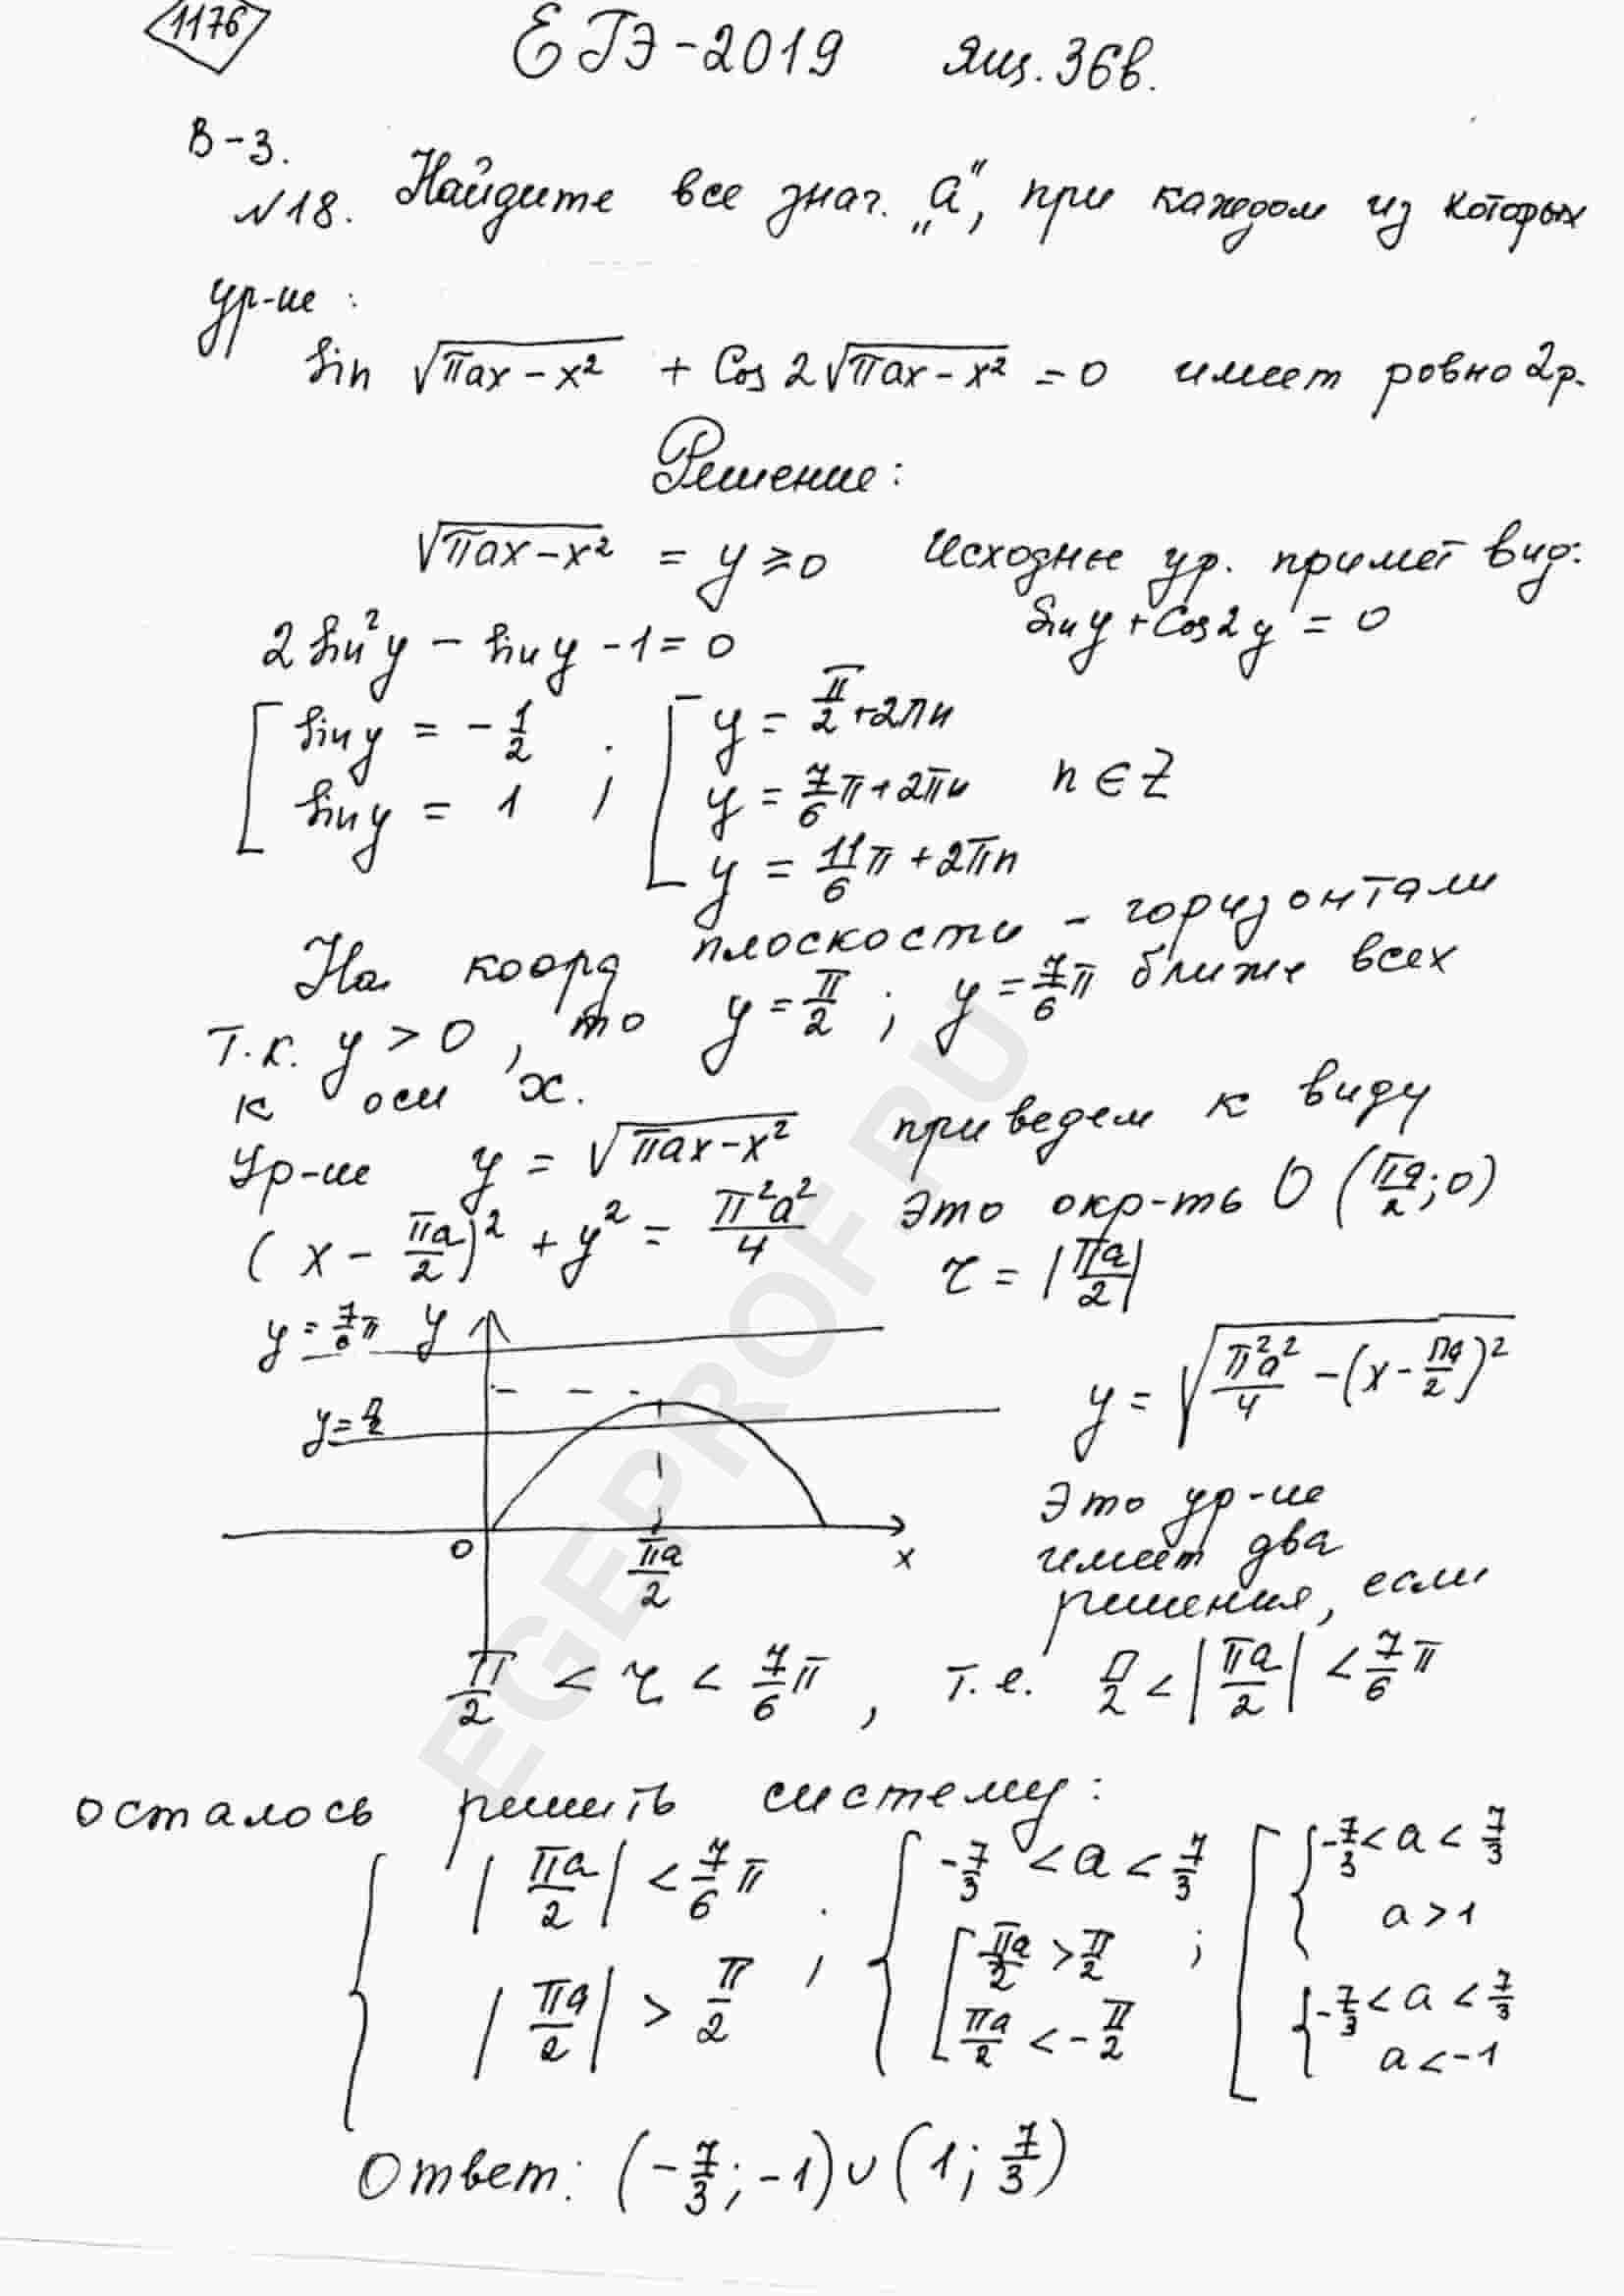 1176
ЕГЭ-2019 Ящ. 36в.
В-3.
№18. Найдите все знач. „а", при каждом из которых
ур-ие:
Sin √(πax - x²) + Cos 2√(πax - x²) = 0 имеет ровно 2р.
Решение:
√(πax - x²) = y ≥ 0 Исходные ур. примет вид:
2 Sin²y - Sin y - 1 = 0 Sin y + Cos 2y = 0
[ Sin y = -1/2 ; [ y = π/2 + 2πn
Sin y = 1 y = 7/6 π + 2πn n ∈ Z
y = 11/6 π + 2πn
На коорд плоскости - горизонтали
т.к. y > 0, то y = π/2 ; y = 7/6 π ближе всех
к оси x.
Ур-ие y = √(πax - x²) приведем к виду
(x - πa/2)² + y² = π²a²/4 Это окр-ть O (πa/2; 0)
r = |πa/2|
y = 7/6 π y
y = π/2
0 πa/2 x
y = √(π²a²/4 - (x - πa/2)²)
Это ур-ие
имеет два
решения, если
π/2 < r < 7/6 π , т.е. π/2 < |πa/2| < 7/6 π
осталось решить систему:
{ |πa/2| < 7/6 π ; { -7/3 < a < 7/3 ; [ { -7/3 < a < 7/3
|πa/2| > π/2 [ πa/2 > π/2 a > 1
πa/2 < -π/2 { -7/3 < a < 7/3
a < -1
Ответ: (-7/3; -1) ∪ (1; 7/3)
EGEPROF.RU